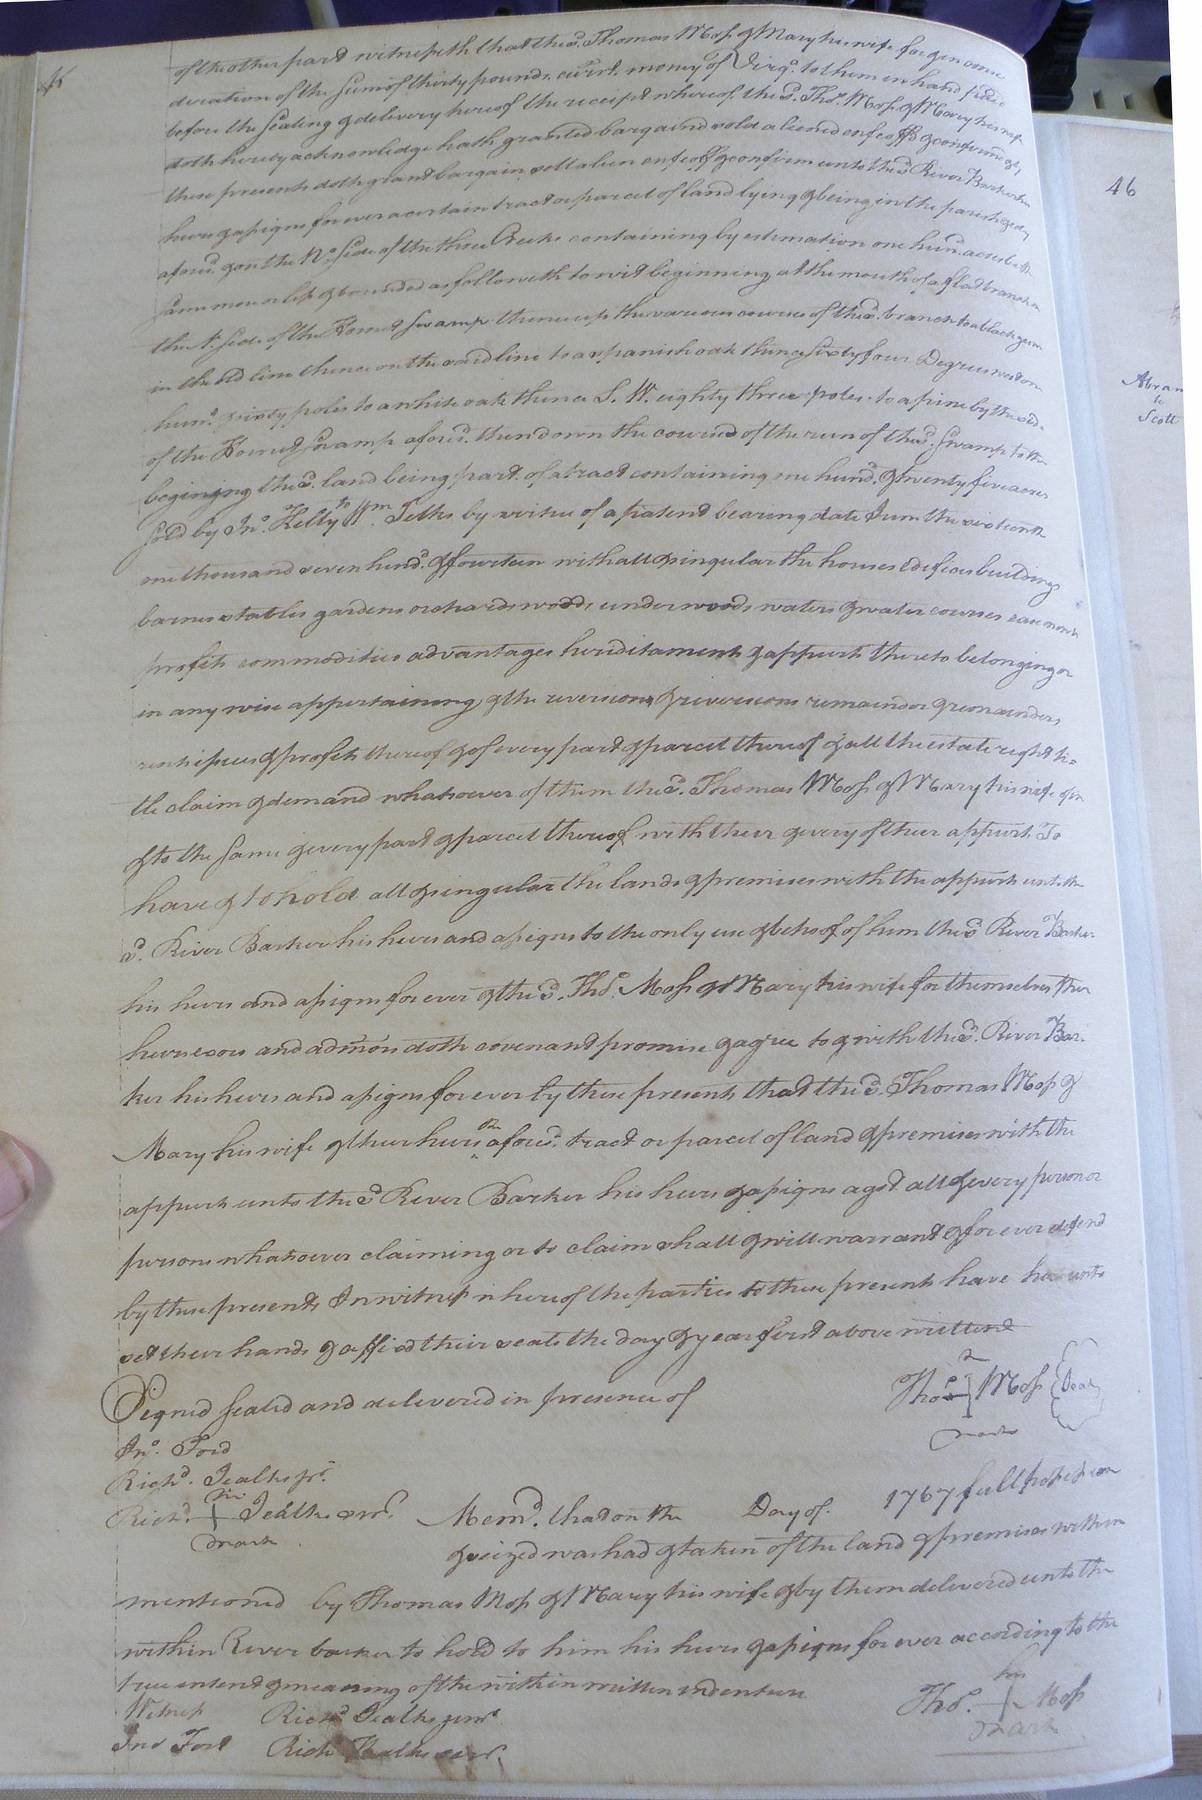 of the other part witnesseth that the sd. Thomas Moss & Mary his wife for &in con
sideration of the sum of thirty pounds curt. money of Virga. to them in hand
before the sealing & delivery hereof the receipt whereof the sd. Thos. Moss & Mary his wife
doth hereby acknowledge hath granted bargaind sold aliened enfeoffd & confirmd & by
these presents doth grant bargain sell alien enfeoff & confirm unto the sd River Barker his
heirs & assigns for ever a certain tract or parcel of land lying & being in the parish &
aforesd. & on the No. side of the three Creeks containing by estimation one hund. acres be the
same more or less & bounded as followeth to wit beginning at the mouth of a flat branch on
the N. side of the Horned Swamp thence up the various courses of the sd. branch to a black gum
in the old line thence on the said line to a spanish oak thence sixty four Degrees west one
hund. sixty poles to a white oak thence S. W. eighty three poles to a pine by the side
of the Horned Swamp aforesd. then down the courses of the run of the sd. Swamp to the
begining the sd. land being part of a tract containing one hund. & twenty five acres
sold by Jno. Kelly to Wm. Jelks by virtue of a patent bearing date June the sixteenth
one thousand seven hund. & fourteen with all & singular the houses edifices buildings
barnes stables gardens orchards woods under woods waters & water courses easements
profits commodities advantages hereditaments & appurts thereto belonging or
in any wise appertaining & the reversion & reversions remainder & remainders
rents issues & profits thereof & of every part & parcel thereof & all the estate right ti=
tle claim & demand whatsoever of them the sd. Thomas Moss & Mary his wife of in
& to the same & every part & parcel thereof with their & every of their appurts. To
have & to hold all & singular the lands & premises with the appurts unto the
sd. River Barker his heirs and assigns to the only use & behoof of him the sd River Barker
his heirs and assigns for ever & the sd. Thos. Moss & Mary his wife for themselves their
heirs exors and admons doth covenant promise & agree to & with the sd. River Bar-
ker his heirs and assigns for ever by these presents that the sd. Thomas Moss &
Mary his wife & their heirs the aforesd. tract or parcel of land & premises with the
appurts unto the sd River Barker his heirs & assigns agst. all & every person or
persons whatsoever claiming or to claim shall & will warrant & for ever defend
by these presents In witness whereof the parties to these presents have hereunto
set their hands & affixed their seals the day & year first above written
Signed sealed and delivered in presence of
Thos. Moss Seal
mark
Jno. Ford
Richd. Jealks jr.
Richd. his Jealks senr.
mark
Memd. that on the Day of 1767 full possession
& seized was had & taken of the land & premises within
mentioned by Thomas Moss & Mary his wife & by them delivered unto the
within River barker to hold to him his heirs & assigns for ever according to the
true intent & meaning of the within written indenture
Witness Richd Jealks junr
Jno Ford Richd Jealks senr.
Thos. his Moss
mark
46
Abram
to
Scott